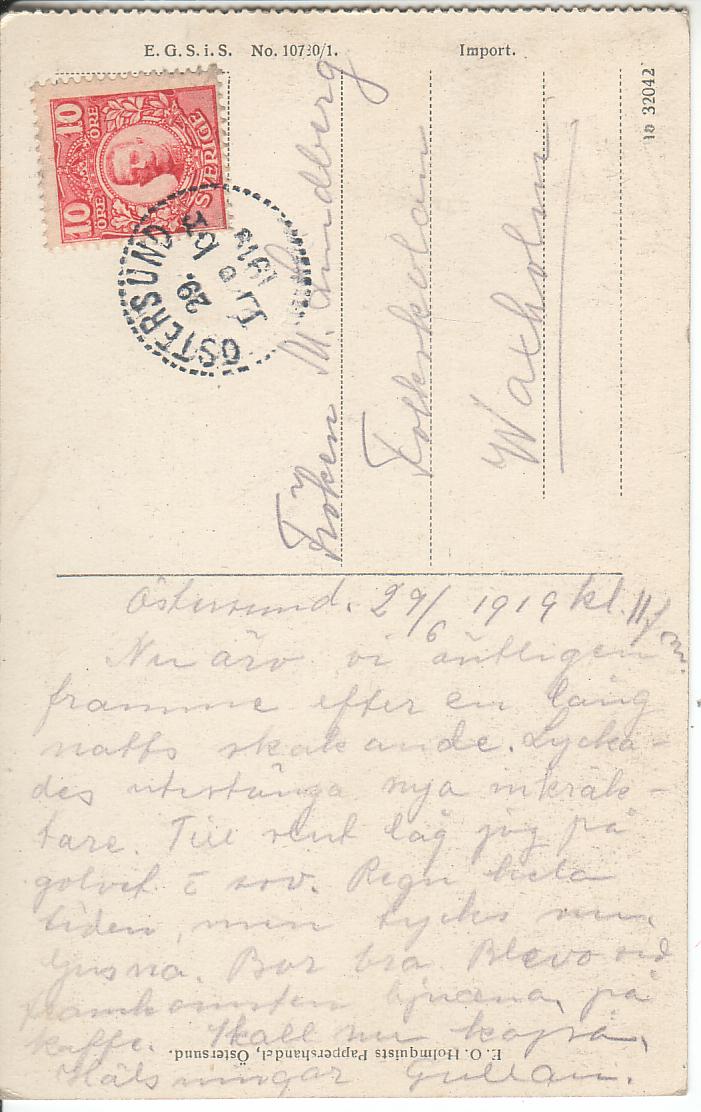 E. G. S. i. S. No. 10730/1. Import.
10 32042
10 ÖRE
SVERIGE
10 ÖRE
ÖSTERSUND
29. 6
1919
Fröken M. Lindberg
Folkskolan
Waxholm
Östersund. 29/6 1919 kl. 11 f.m.
Nu äro vi äntligen
framme efter en lång
natts skakande. Lycka-
des utestänga nya inkräk-
tare. Till slut låg jag på
golvet o sov. Regn hela
tiden, men tycks nu
ljusna. Bor bra. Blevo vid
framkomsten bjudna på
kaffe. Skall nu
Hälsningar Gullan.
E. O. Holmquists Pappershandel, Östersund.